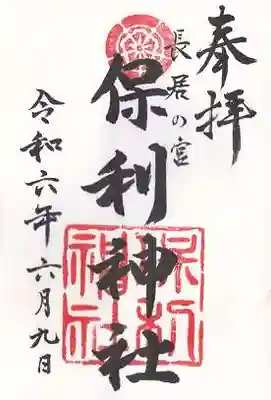 奉拝
長居の宮
保利神社
令和六年六月九日
保利
神社